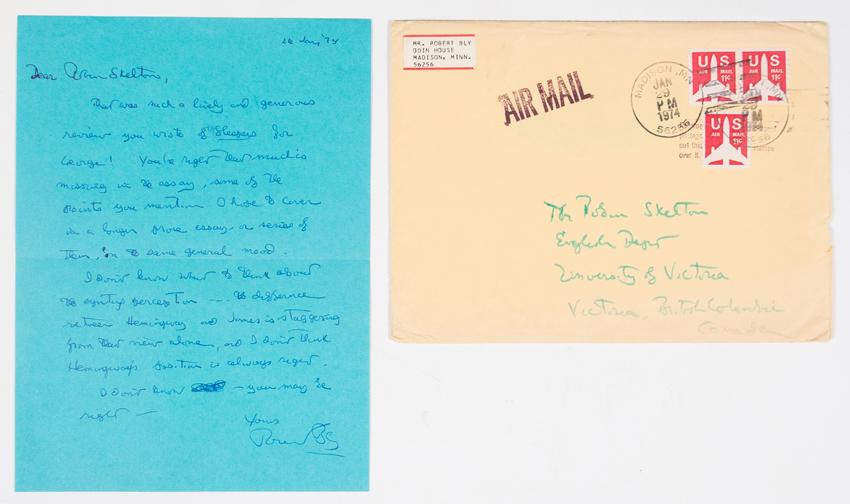 26 Jan 74
Dear Robin Skelton,
That was such a lively and generous
review you wrote of Sleepers for
George! You're right that much is
missing in the essay, some of the
points you mention I hope to cover
in a longer prose essay, or series of
them, in the same general mood.
I don't know what to think about
the syntax perception --- the difference
between Hemingway and James is staggering
from that view alone, and I don't think
Hemingway's position is always right.
I don't know - you may be
right -
Yours
Robert Bly
MR. ROBERT BLY
ODIN HOUSE
MADISON, MINN.
56256
AIR MAIL
MADISON, MN
JAN
29
PM
1974
56256
US
AIR MAIL 11¢
US
AIR MAIL 11¢
US
AIR MAIL 11¢
out this
over it.
Mr Robin Skelton
English Dept
University of Victoria
Victoria, British Columbia
Canada